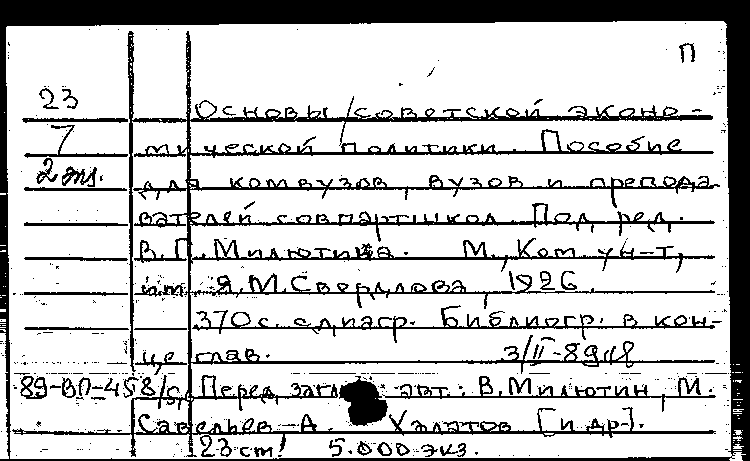 П
23
7
2 экз.
Основы советской эконо-
мической политики. Пособие
для комвузов, вузов и препода-
вателей совпартшкол. Под ред.
В.П. Милютина. М., Ком. ун-т,
им. Я.М. Свердлова, 1926.
370 с. с диагр. Библиогр. в кон-
це глав.
89-ВП-458/ Перед загл. авт.: В. Милютин, М.
Савельев, А. Халатов [и др.].
23 ст! 5.000 экз.